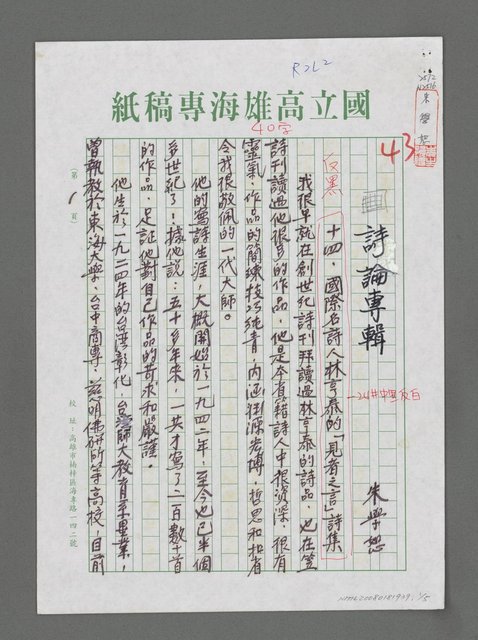 R2L2
國立高雄海專稿紙
40字
43
朱學恕
反黑
詩論專輯
十四、國際名詩人林亨泰的「見者之言」詩集
朱學恕
我很早就在創世紀詩刊拜讀過林亨泰的詩品,也在笠
詩刊讀過他很多的作品,他是本省籍詩人中很資深,很有
靈氣,作品的簡練技巧純青,內涵淵源宏博,哲思和批省
令我很敬佩的一代大師。
他的寫詩生涯,大概開始於一九四二年,至今也已半個
多世紀了!據他說:五十多年來,一共才寫了二百數十首
的作品,足証他對自己作品的苛求和嚴謹。
他生於一九二四年的台灣彰化,台師大教育系畢業,
曾執教於東海大學,台中商專,慈明佛研所等高校,目前
(第 1 頁)
校址:高雄市楠梓區海專路一四二號
NMTL20080181909, 1/5